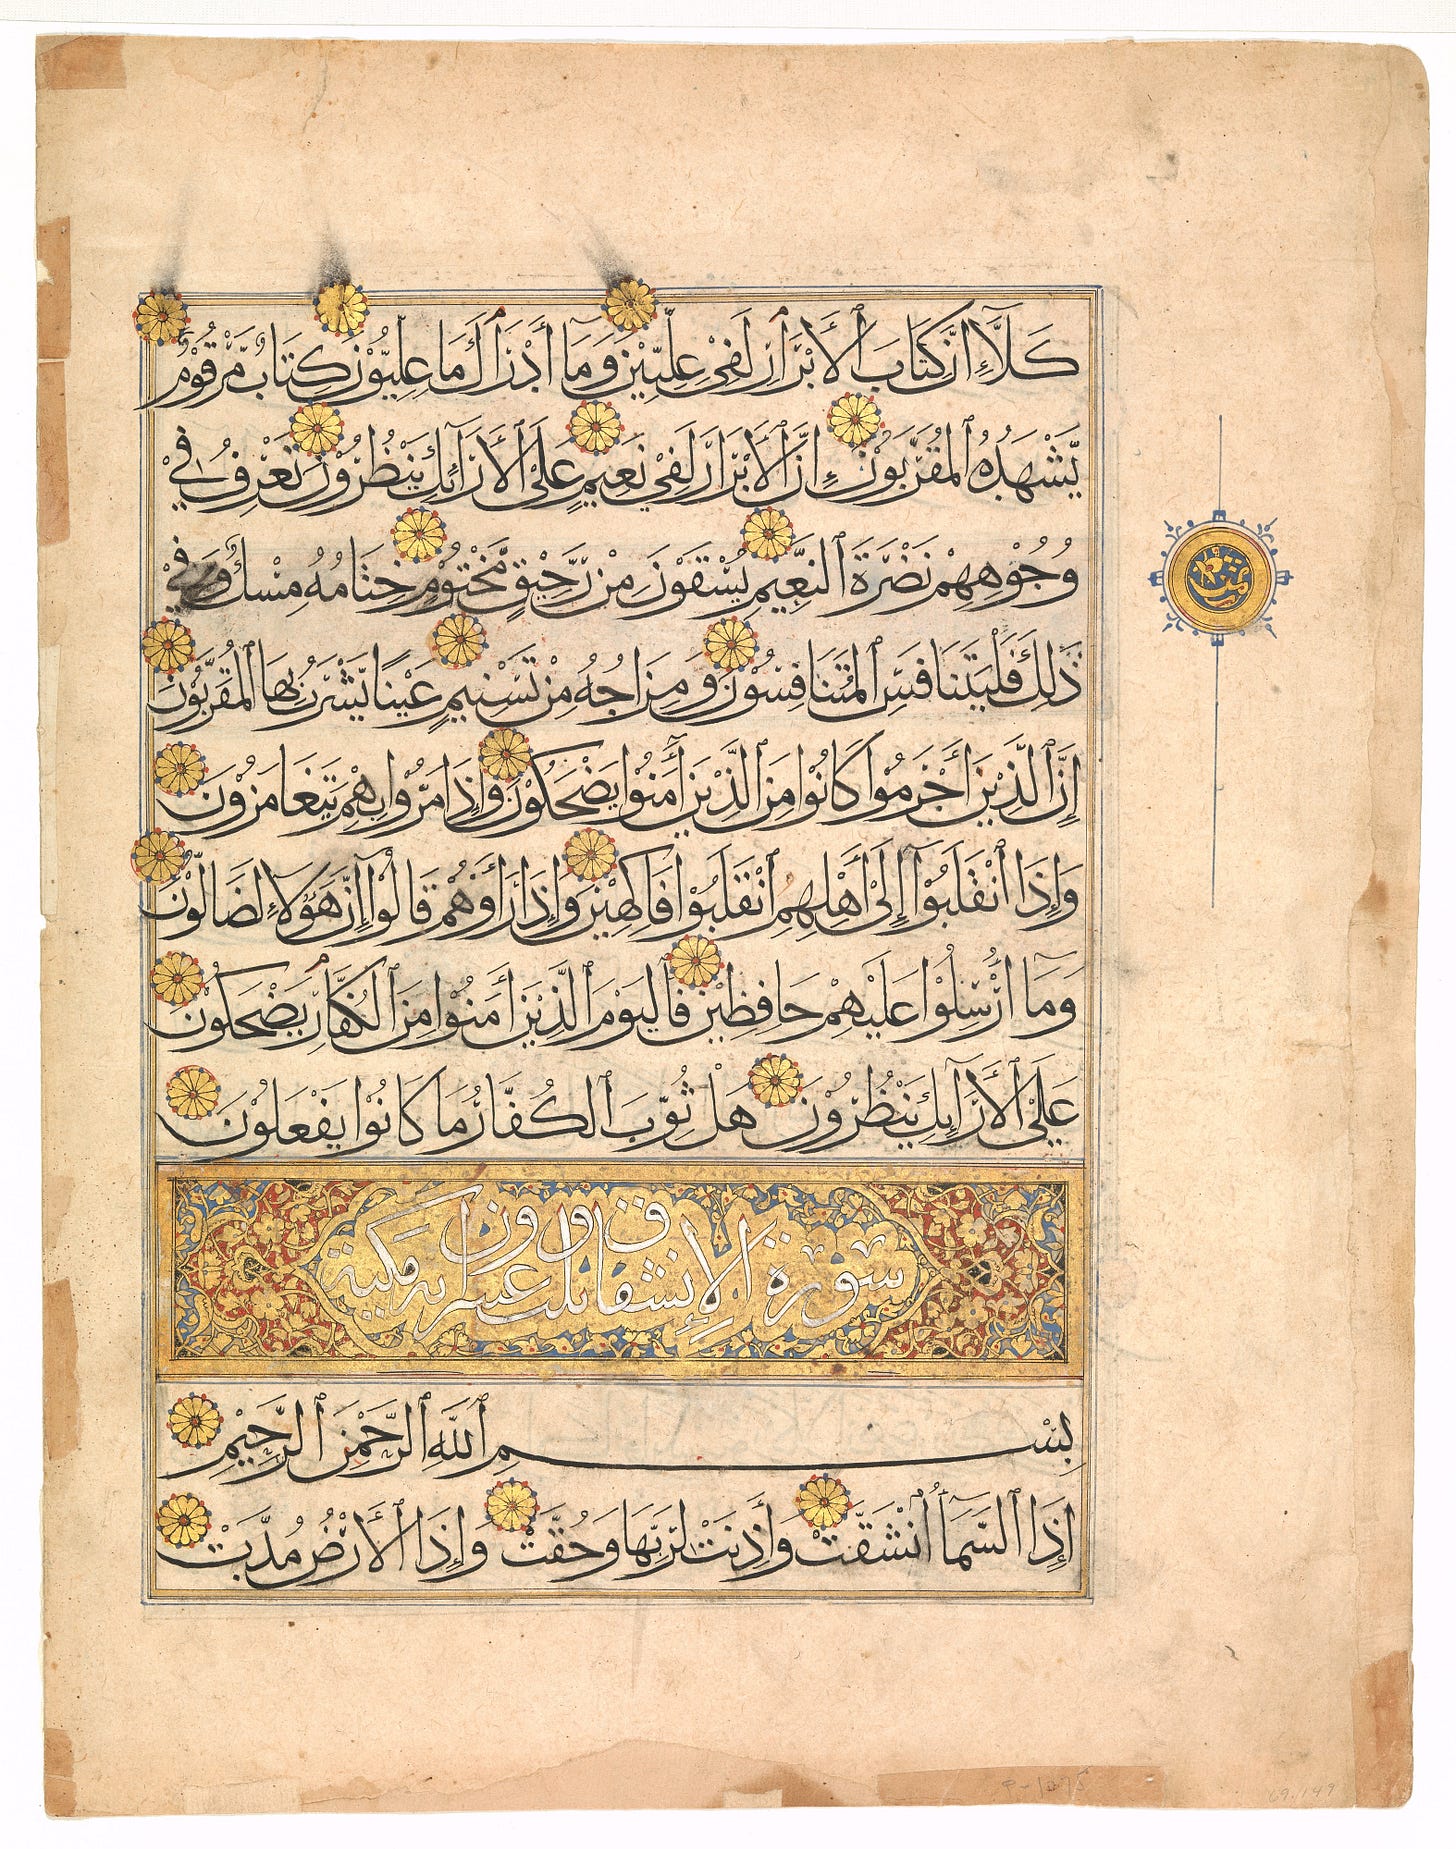 كَلَّآ إِنَّ كِتَابَ الْأَبْرَارِ لَفِي عِلِّيِّينَ وَمَآ أَدْرَاكَ مَا عِلِّيُّونَ كِتَابٌ مَّرْقُومٌ
يَّشْهَدُهُ الْمُقَرَّبُونَ إِنَّ الْأَبْرَارَ لَفِي نَعِيمٍ عَلَى الْأَرَآئِكِ يَنْظُرُونَ تَعْرِفُ فِي
وُجُوهِهِمْ نَضْرَةَ النَّعِيمِ يُسْقَوْنَ مِنْ رَّحِيقٍ مَّخْتُومٍ خِتَامُهُ مِسْكٌ وَفِي
ذَلِكَ فَلْيَتَنَافَسِ الْمُتَنَافِسُونَ وَمِزَاجُهُ مِنْ تَسْنِيمٍ عَيْنًا يَّشْرَبُ بِهَا الْمُقَرَّبُونَ
إِنَّ الَّذِينَ أَجْرَمُوا كَانُوا مِنَ الَّذِينَ أَمَنُوا يَضْحَكُونَ وَإِذَا مَرُّوا بِهِمْ يَتَغَامَزُونَ
وَإِذَا انْقَلَبُوْآ إِلَى أَهْلِهِمُ انْقَلَبُوا فَاكِهِينَ وَإِذَا رَأَوْهُمْ قَالُوْآ إِنَّ هَؤُلَآءِ لَضَآلُّونَ
وَمَآ أُرْسِلُوا عَلَيْهِمْ حَافِظِينَ فَالْيَوْمَ الَّذِينَ أَمَنُوا مِنَ الْكُفَّارِ يَضْحَكُونَ
عَلَى الْأَرَآئِكِ يَنْظُرُونَ هَلْ ثُوِّبَ الْكُفَّارُ مَا كَانُوا يَفْعَلُونَ
سورة الإنشقاق عشرون وثلث اية مكية
بِسْمِ اللَّهِ الرَّحْمَنِ الرَّحِيمِ
إِذَا السَّمَآءُ انْشَقَّتْ وَأَذِنَتْ لِرَبِّهَا وَحُقَّتْ وَإِذَا الْأَرْضُ مُدَّتْ
69.149